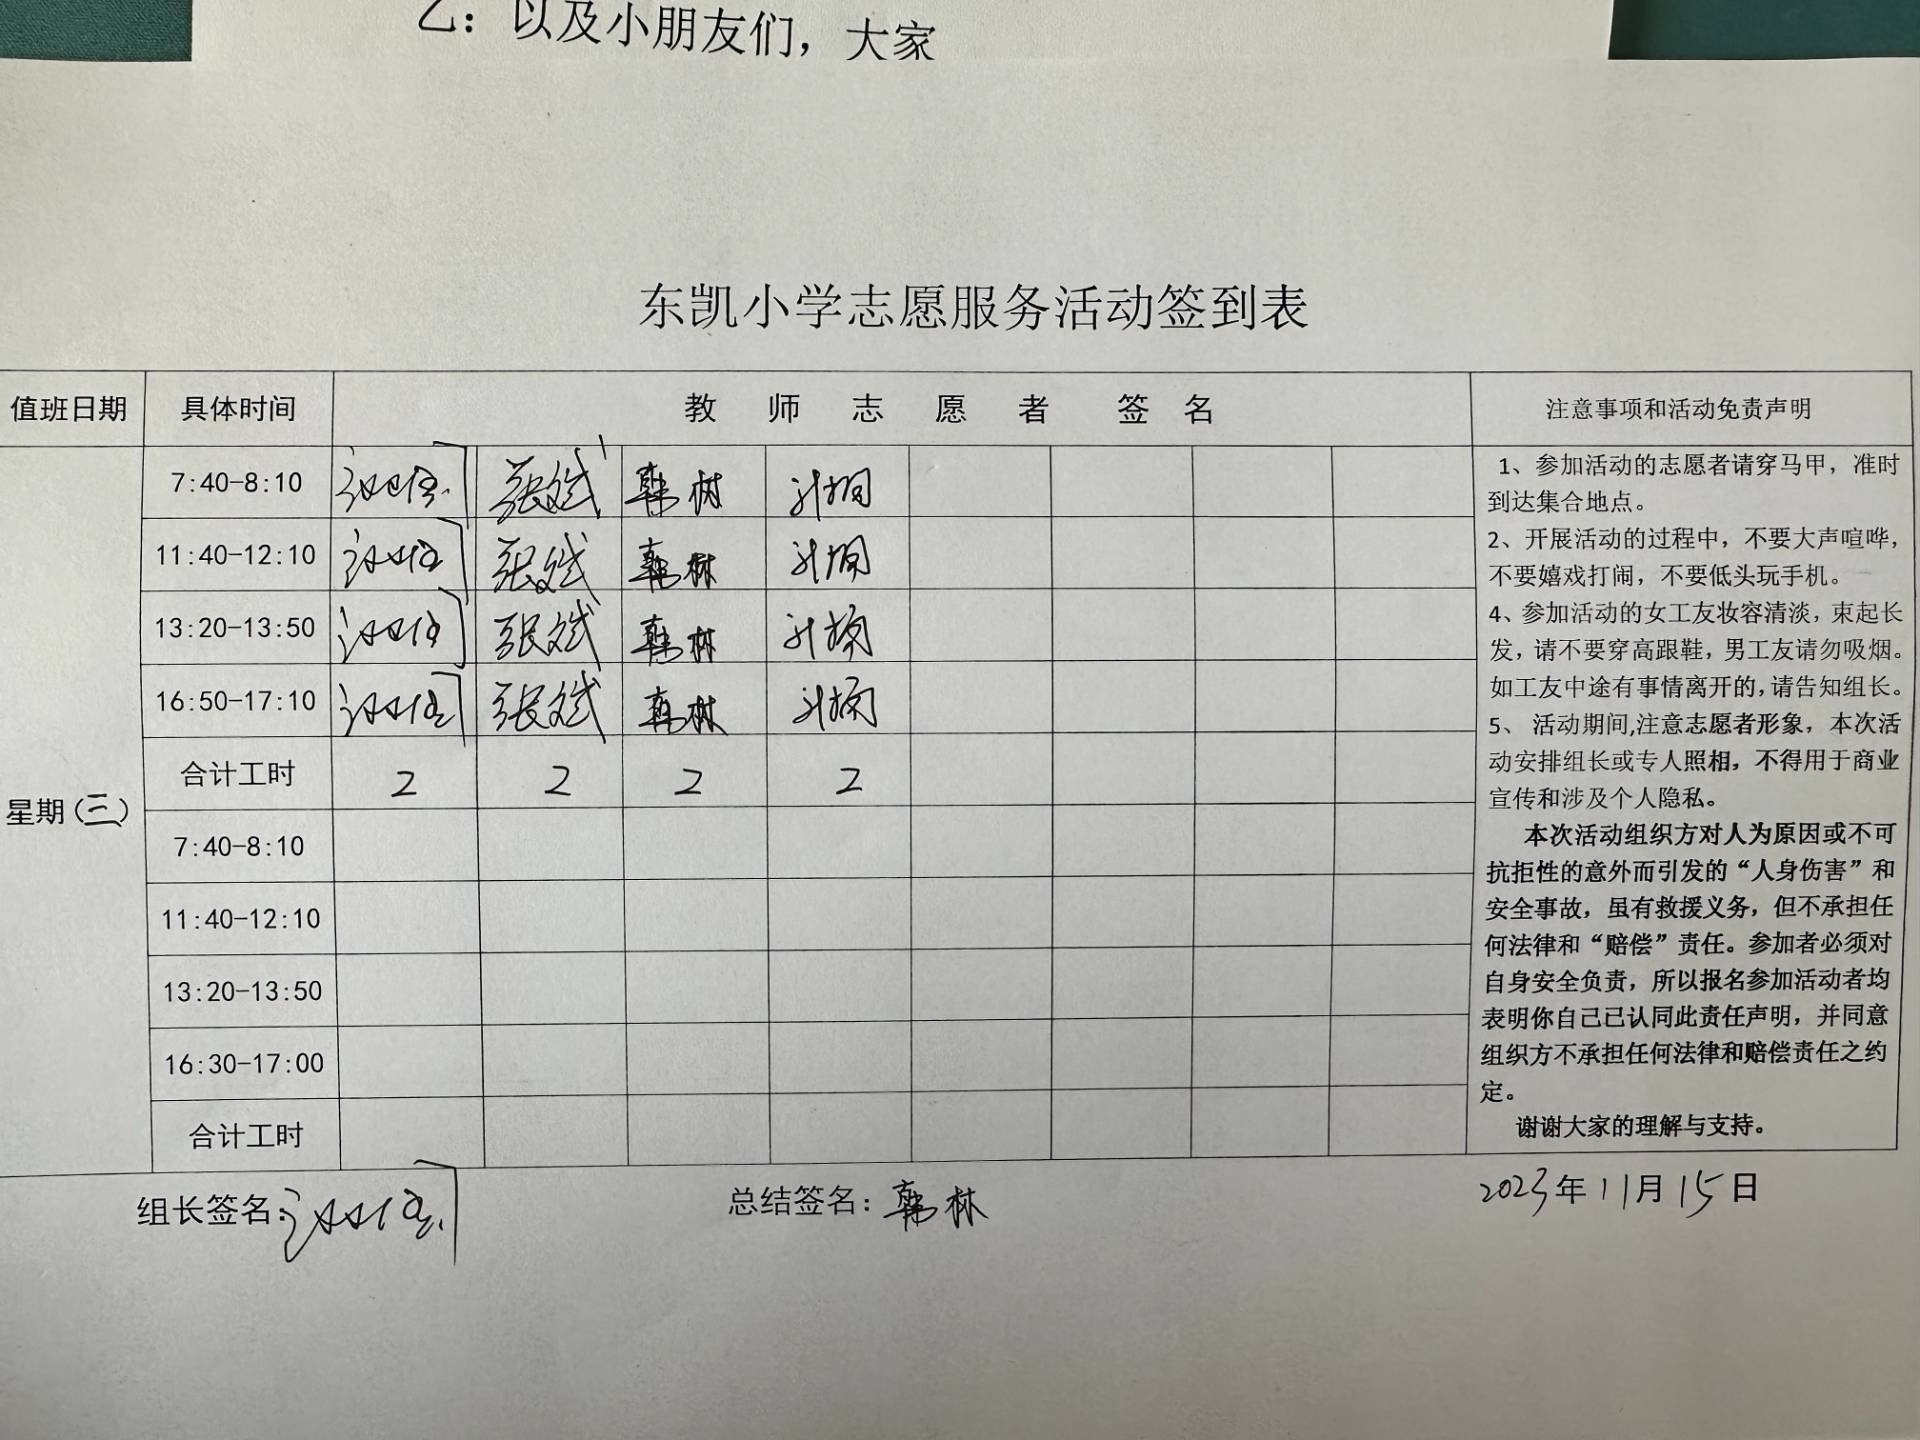 乙：以及小朋友们，大家
东凯小学志愿服务活动签到表
值班日期 具体时间 教 师 志 愿 者 签 名 注意事项和活动免责声明
7:40-8:10 张斌 韩林
11:40-12:10 张斌 韩林
13:20-13:50 张斌 韩林
16:50-17:10 张斌 韩林
合计工时 2 2 2 2
星期(三)
7:40-8:10
11:40-12:10
13:20-13:50
16:30-17:00
合计工时
1、参加活动的志愿者请穿马甲，准时
到达集合地点。
2、开展活动的过程中，不要大声喧哗，
不要嬉戏打闹，不要低头玩手机。
4、参加活动的女工友妆容清淡，束起长
发，请不要穿高跟鞋，男工友请勿吸烟。
如工友中途有事情离开的，请告知组长。
5、 活动期间,注意志愿者形象，本次活
动安排组长或专人照相，不得用于商业
宣传和涉及个人隐私。
本次活动组织方对人为原因或不可
抗拒性的意外而引发的“人身伤害”和
安全事故，虽有救援义务，但不承担任
何法律和“赔偿”责任。参加者必须对
自身安全负责，所以报名参加活动者均
表明你自己已认同此责任声明，并同意
组织方不承担任何法律和赔偿责任之约
定。
谢谢大家的理解与支持。
组长签名: 总结签名：韩林 2023年11月15日